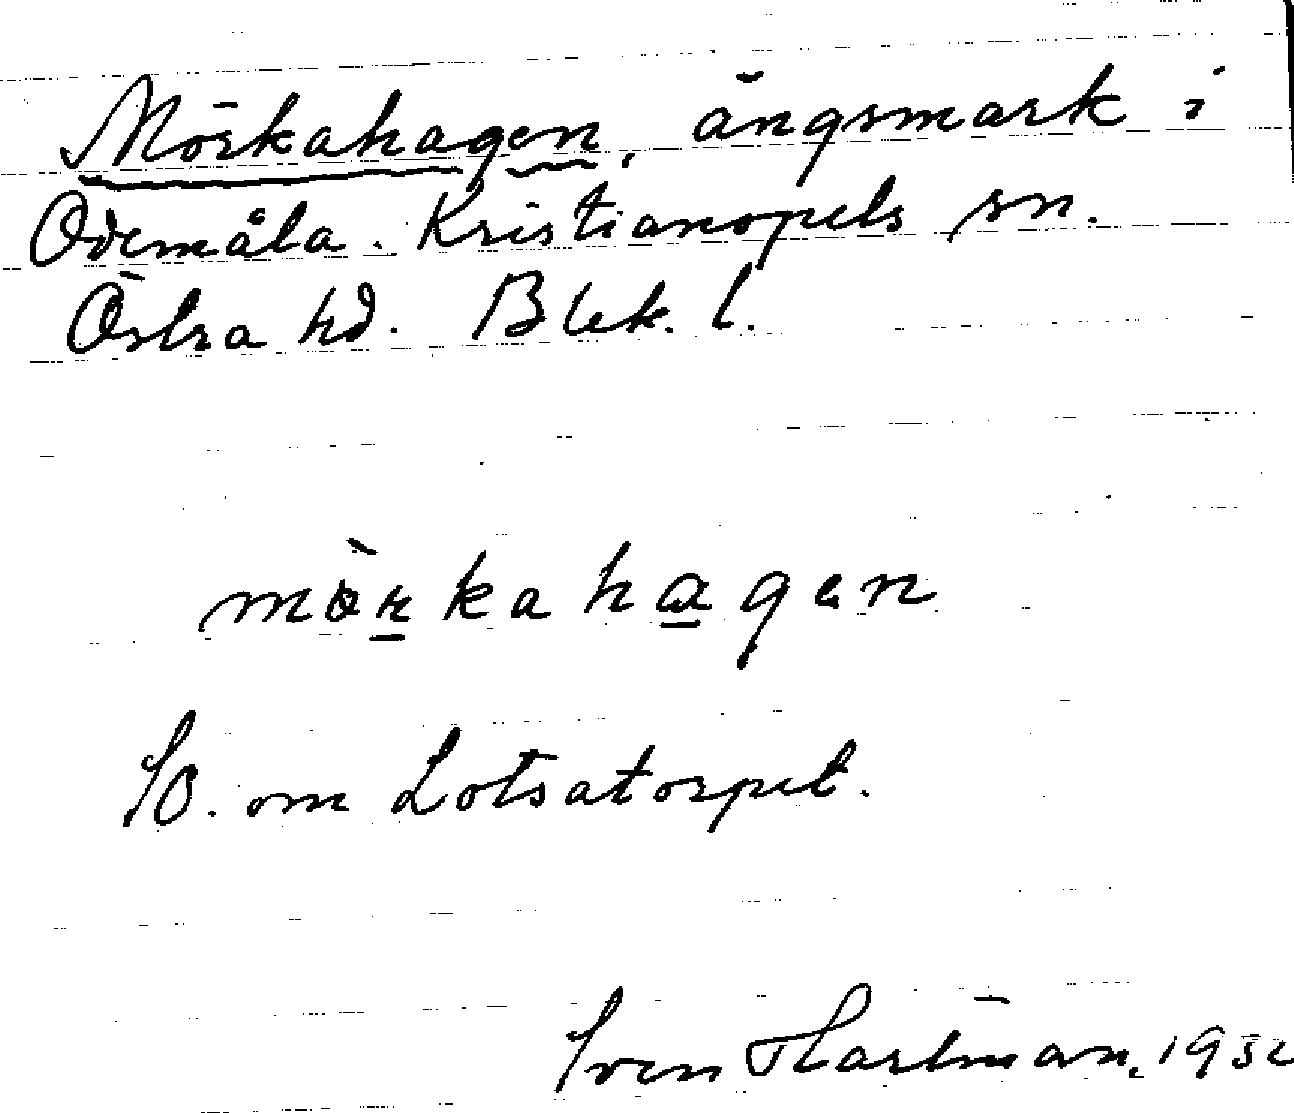 Mörkahagen, ängsmark i
Odemåla. Kristianopels sn.
Östra hd. Blek. l.
mörkahagen
SO. om Lotsatorpet.
Sven Hartman. 1932